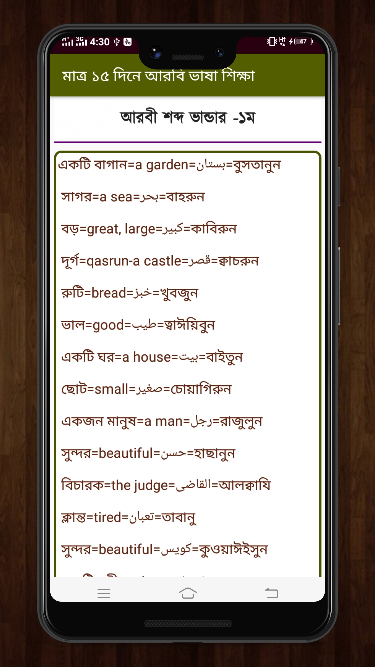 4:30
মাত্র ১৫ দিনে আরবি ভাষা শিক্ষা
আরবী শব্দ ভান্ডার -১ম
একটি বাগান=a garden=بستان=বুসতানুন
সাগর=a sea=بحر=বাহরুন
বড়=great, large=كبير=কাবিরুন
দূর্গ=qasrun-a castle=قصر=ক্বাচরুন
রুটি=bread=خبز=খুবজুন
ভাল=good=طيب=ত্বাঈয়িবুন
একটি ঘর=a house=بيت=বাইতুন
ছোট=small=صغير=চোয়াগিরুন
একজন মানুষ=a man=رجل=রাজুলুন
সুন্দর=beautiful=حسن=হাছানুন
বিচারক=the judge=القاضى=আলক্বাযি
ক্লান্ত=tired=تعبان=তাবানু
সুন্দর=beautiful=كويس=কুওয়াঈইসুন